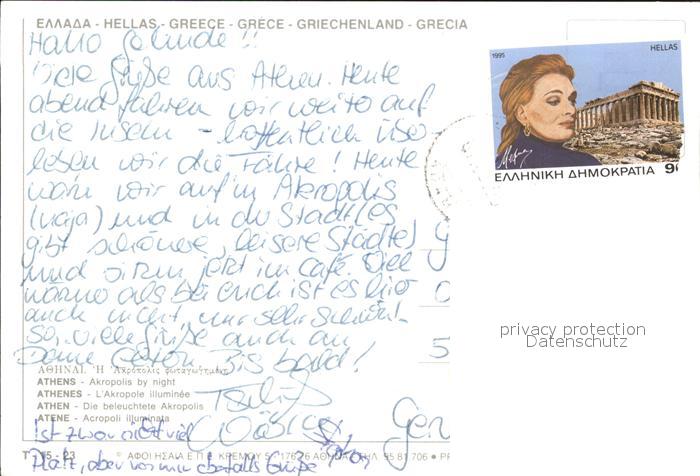 ΕΛΛΑΔΑ - HELLAS - GREECE - GRÈCE - GRIECHENLAND - GRECIA
Hallo Gelinde!!
Viele Grüße aus Athen. Heute
abend fahren wir weiter auf
die Inseln - hoffentlich über-
leben wir die Fähre! Heute
waren wir auf'n Akropolis
(naja) und in der Stadt (es
gibt schönere, leisere Städte)
und sitzen jetzt im Café. Viel
wärmer als bei euch ist es hier
auch nicht nur sehr
So, viele Grüße auch an
Deine Eltern. Bis bald!
1995
HELLAS
ΕΛΛΗΝΙΚΗ ΔΗΜΟΚΡΑΤΙΑ
9
privacy protection
Datenschutz
5
ΑΘΗΝΑΙ. Ἡ Ἀκρόπολις φωταγωγημένη
ATHENS - Akropolis by night
ATHENES - L'Akropole illuminée
ATHEN - Die beleuchtete Akropolis
ATENE - Acropoli illuminata
Tschüß
Ger
Ist zwar nicht viel
23 © ΑΦΟΙ ΗΣΑΪΑ Ε Π Ε ΚΡΕΜΟΥ 5 176 76 ΑΘΗΝΑ 95 81 706
Platz, aber von mir ebenfalls Grüße